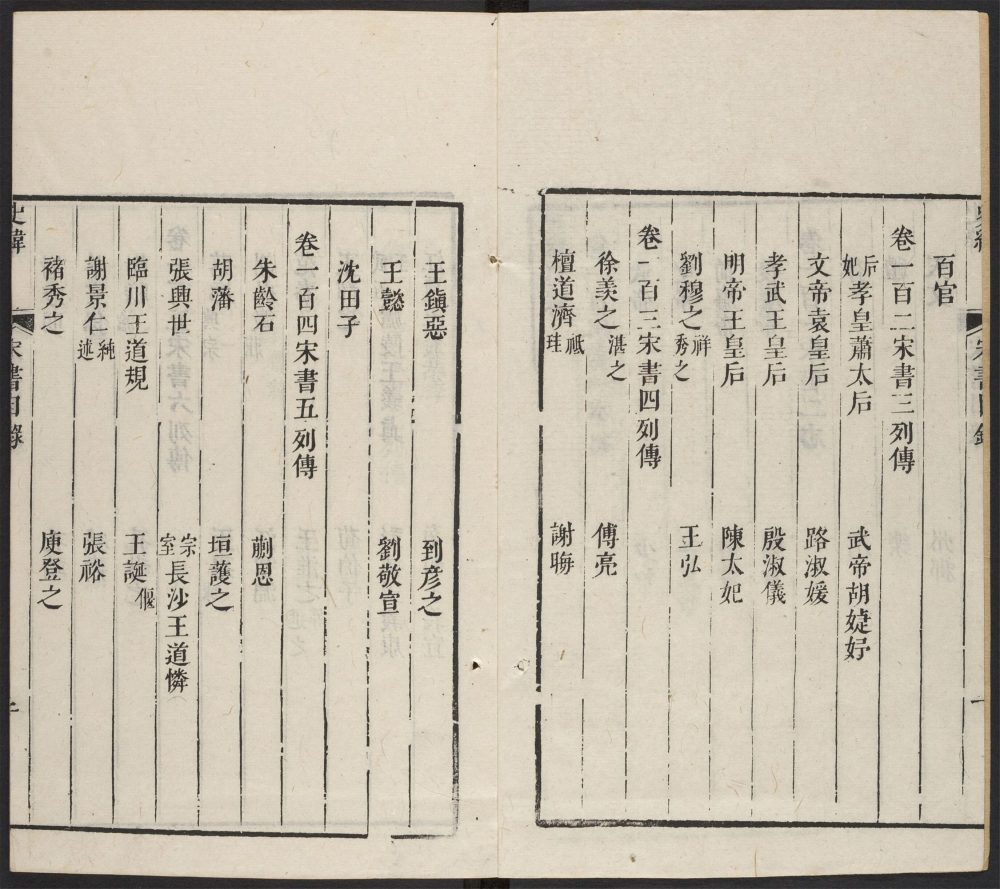 百官
卷一百二宋書三列傳
后妃孝皇蕭太后 武帝胡婕妤
文帝袁皇后 路淑媛
孝武王皇后 殷淑儀
明帝王皇后 陳太妃
劉穆之祥秀之 王弘
卷一百三宋書四列傳
徐羡之湛之 傅亮
檀道濟祗珪 謝晦
王鎭惡 到彦之
王懿 劉敬宣
沈田子
卷一百四宋書五列傳
朱齡石 蒯恩
胡藩 垣護之
張興世 宗室長沙王道憐
臨川王道規 王誕偃
謝景仁純述 張裕
褚秀之 庾登之
史緯 宋書目錄